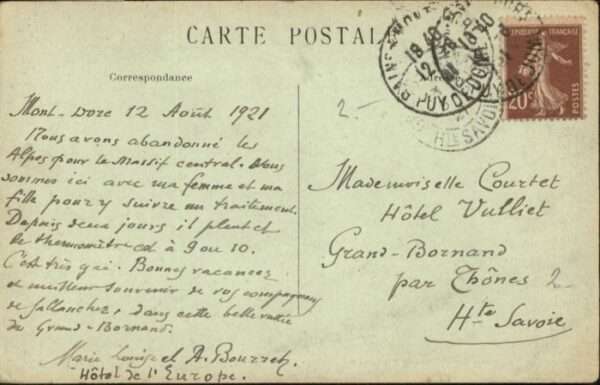 CARTE POSTALE
Correspondance
RÉPUBLIQUE FRANÇAISE
20c
POSTES
PUY DE DOME
Hte SAVOIE
Mont-Dore 12 Août 1921
Nous avons abandonné les
Alpes pour le Massif central. Nous
sommes ici avec ma femme et ma
fille pour y suivre un traitement.
Depuis deux jours il pleut et
le thermomètre est à 9 ou 10.
C'est très gai. Bonnes vacances
et meilleur souvenir de vos compagnons
de Sallanches, dans cette belle vallée
du Grand-Bornand.
Marie Louise et A. Bourrel
Hôtel de l'Europe.
2-
Mademoiselle Courtet
Hôtel Vulliet
Grand-Bornand
par Thônes 2
Hte Savoie